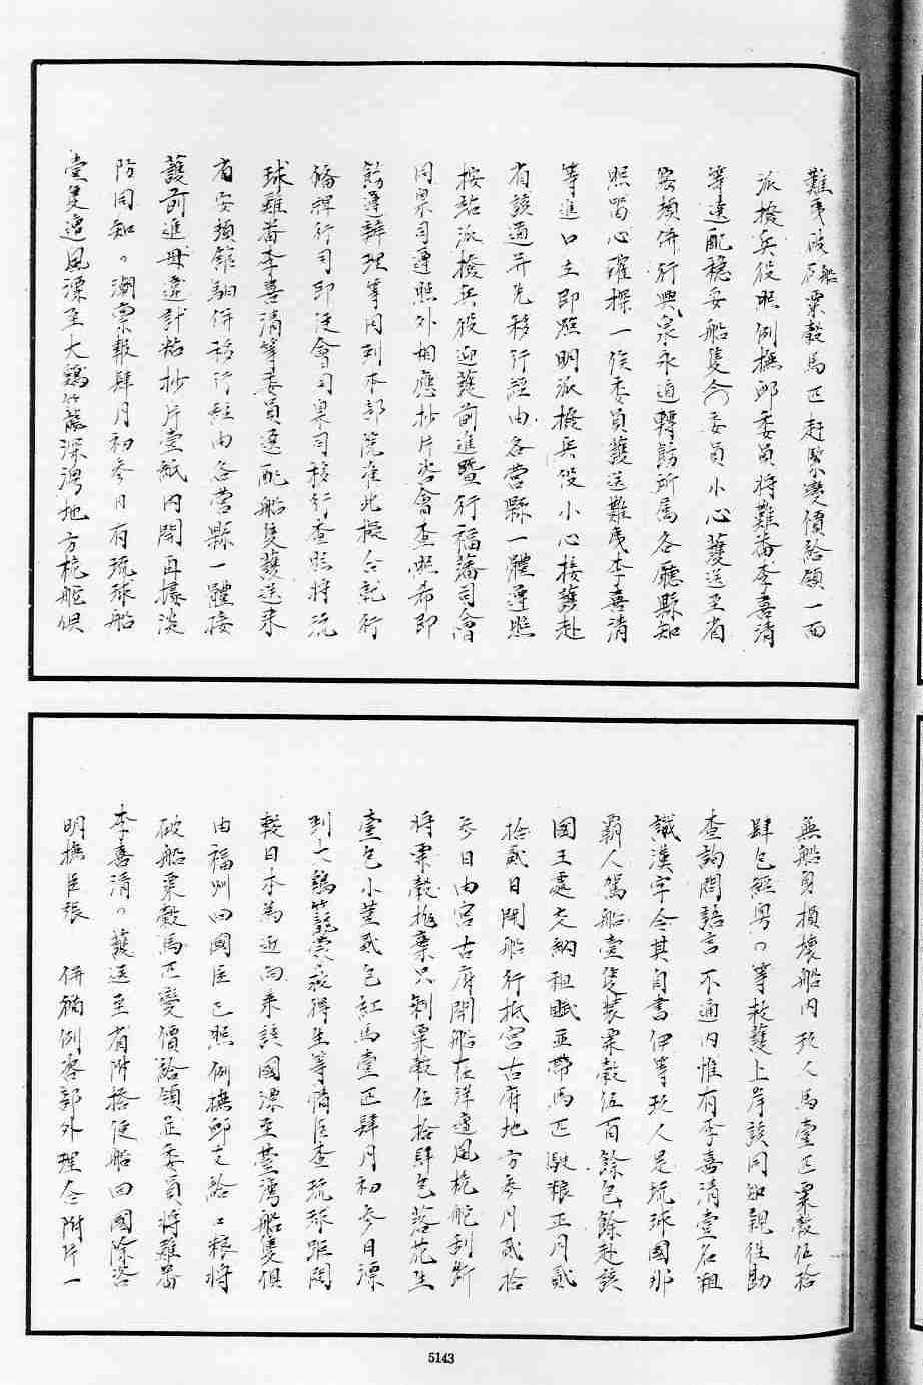 難夷破船粟穀馬匹赶緊變價給領一面
派撥兵役照例撫卹委員將難番李喜清
等速配穩妥船隻仍委員小心護送至省
安頓併行興泉永道轉飭所属各廳縣知
照留心確探一俟委員護送難夷李喜清
等進口立即照明派撥兵役小心接護赴
省該道并先移行經由各營縣一體遵照
按站派撥兵役迎護前進暨行福藩司會
同臬司遵照外相應抄片咨會查照希即
飭遵辦理等因到本部院准此擬合就行
備牌行司即便會司臬司移行查照將流
球難番李喜清等委員逐配船隻護送来
省安頓館驲併移行經由各營縣一體接
護前進毋違計粘抄片壹紙內開再據淡
防同知ヽ潮稟報肆月初参日有琉球船
壹隻遭風漂至大鷄籠深灣地方桅舵俱
無船身損壞船内玖人馬壹匹粟穀伍拾
肆包經粤ヽ等救護上岸該同知親往勘
查詢問語言不通內惟有李喜清壹名粗
識漢字令其自書伊等玖人是琉球國那
霸人駕船壹隻装粟穀伍百餘包餘赴該
國王處交納租賦並帶馬匹馱粮正月貳
拾貳日開船行抵宮古府地方参月貳拾
参日由宮古府開船在洋遭風桅舵刮断
將粟穀抛棄只剩粟穀伍拾肆包落花生
壹包小荳貳包紅馬壹匹肆月初参日漂
到大鷄籠嵓救得生等情臣查琉球距閩
較日本為近向来該國漂至臺灣船隻俱
由福州回國臣已照例撫卹支給ミ粮將
破船粟穀馬匹變價給領足委員將難番
李喜清ヽ護送至省附搭便船回國除咨
明撫臣張 併循例咨部外理合附片一
5143